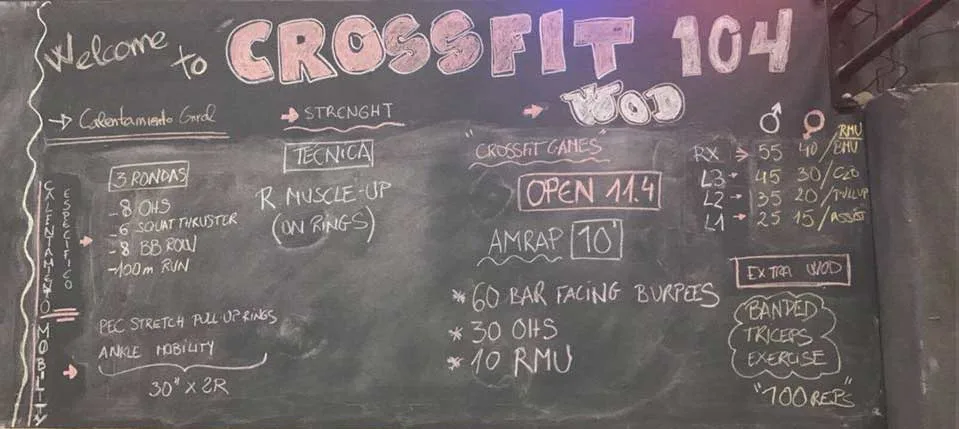 Welcome to CROSSFIT 104
→ Calentamiento Gnral
CALENTAMIENTO
ESPECIFICO
3 RONDAS
-8 OHS
-6 SQUAT THRUSTER
-8 BB ROW
-100m RUN
MOBILITY
PEC STRETCH PULL UP RINGS
ANKLE MOBILITY
30" X 2R
→ STRENGHT
TECNICA
R MUSCLE-UP
(ON RINGS)
→ WOD
"CROSSFIT GAMES"
OPEN 11.4
AMRAP 10'
* 60 BAR FACING BURPEES
* 30 OHS
* 10 RMU
♂ ♀ RMU
RX → 55 40 / BMU
L3 → 45 30 / C2O
L2 → 35 20 / PULLUP
L1 → 25 15 / ASSIST
EXTRA WOD
BANDED
TRICEPS
EXERCISE
"100 REPS"